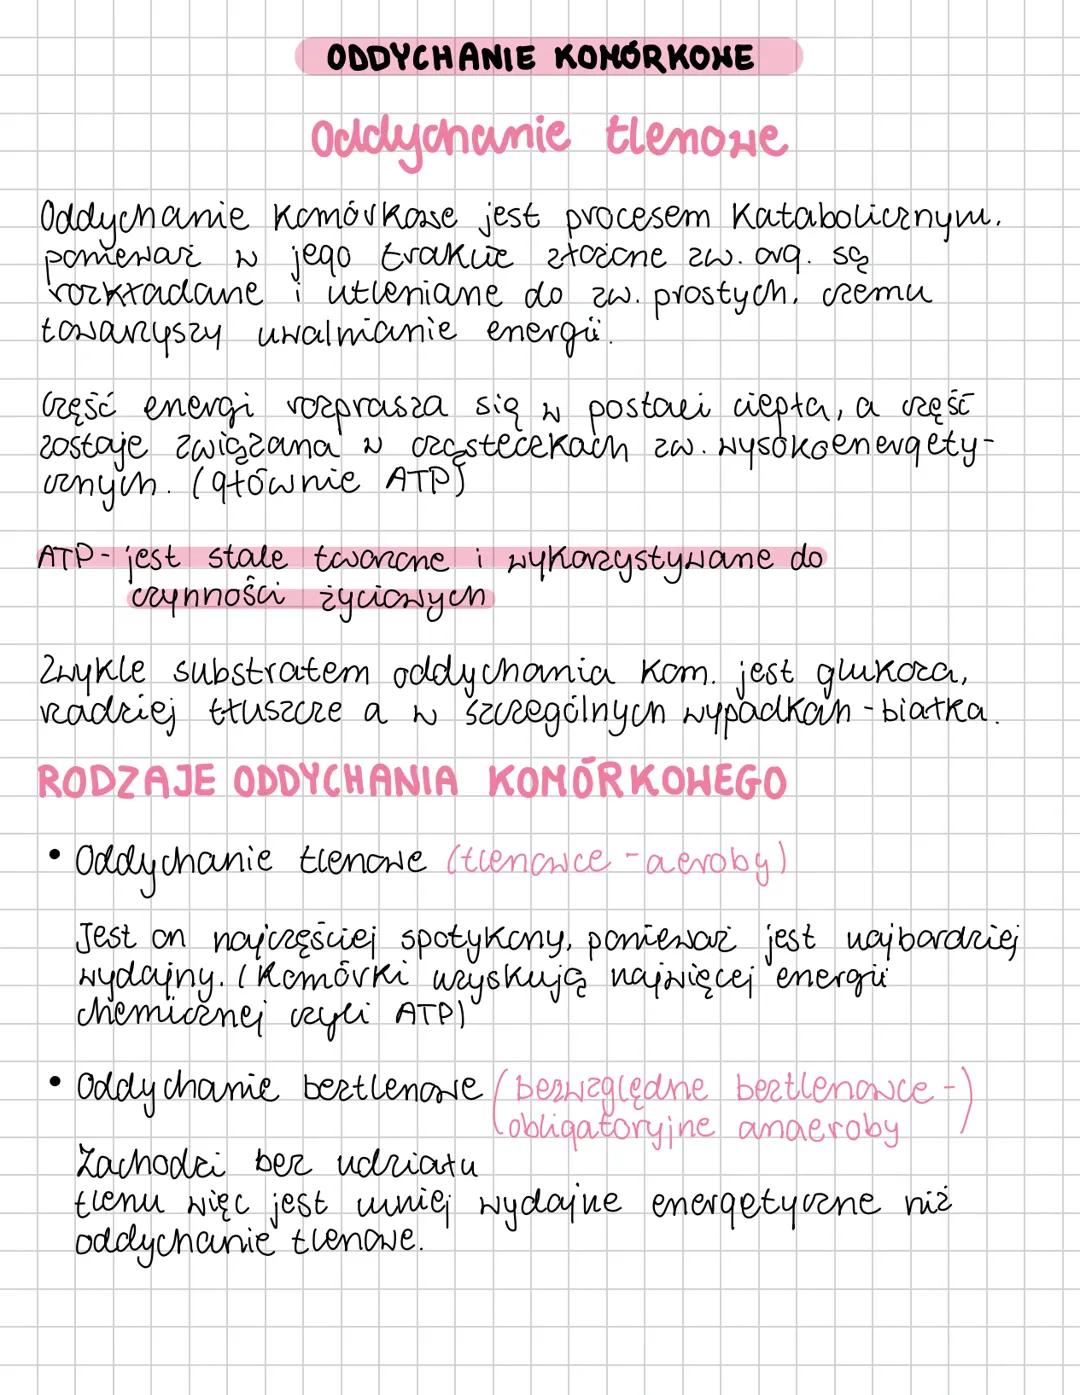 ODDYCHANIE KOMÓRKOWE
Oddychanie tlenowe
Oddychanie komórkowe jest procesem katabolicznym,
ponieważ w jego trakcie złożone zw. org. są
rozkładane i utleniane do zw. prostych, czemu
towarzyszy uwalnianie energii.
Część energi rozprasza się w postaci ciepła, a część
zostaje związana w cząsteczkach zw. wysokoenergety-
cznych. (głównie ATP)
ATP - jest stale tworzone i wykorzystywane do
czynności życiowych
Zwykle substratem oddychania kom. jest glukoza,
rzadziej tłuszcze a w szczególnych wypadkach - białka.
RODZAJE ODDYCHANIA KOMÓRKOWEGO
• Oddychanie tlenowe (tlenowce - aeroby)
Jest on najczęściej spotykany, ponieważ jest najbardziej
wydajny. (Komórki uzyskują najwięcej energii
chemicznej czyli ATP)
• Oddychanie beztlenowe (bezwzględne beztlenowce -
obligatoryjne anaeroby)
Zachodzi bez udziału
tlenu więc jest mniej wydajne energetyczne niż
oddychanie tlenowe.